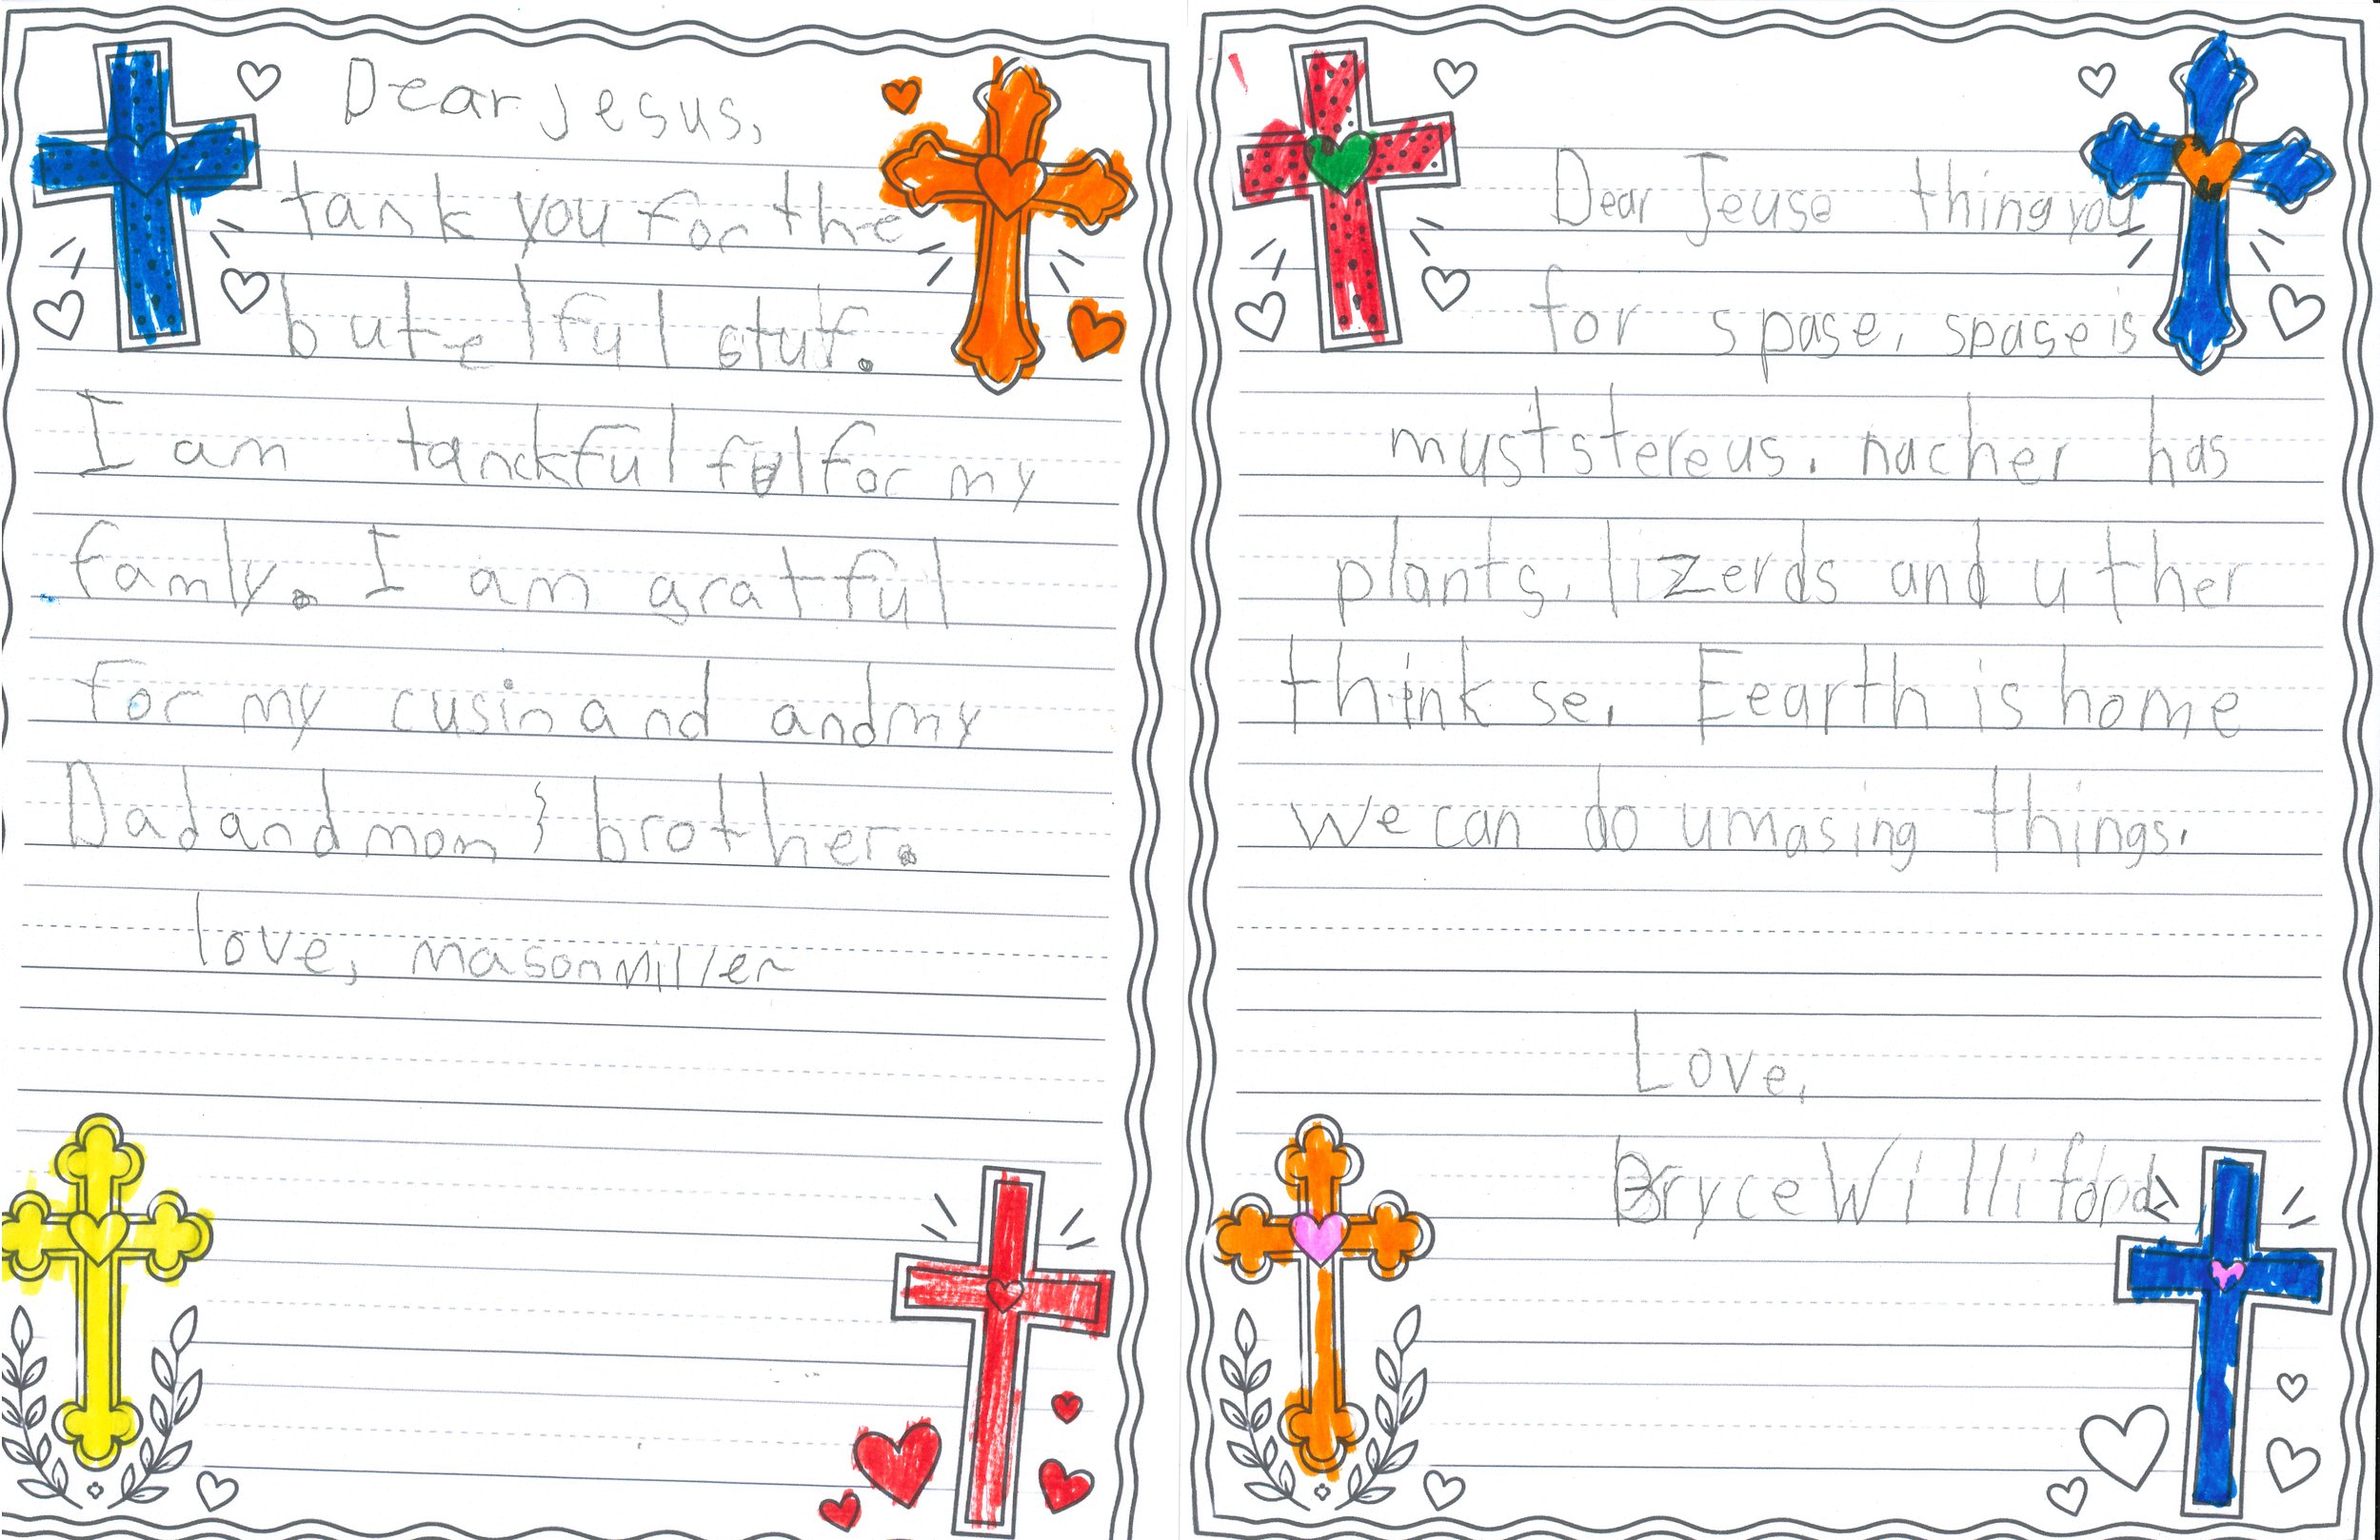 Dear Jesus,
tank you for the
butelful stuf.
I am tanckful ful for my
famly. I am gratful
for my cusin and and my
Dad and mom & brother.
love, mason Miller
Dear Jeuse thing you
for spase, spase is
muststereus. nacher has
plants, lizerds and uther
think se. Eearth is home
we can do umasing things.
Love,
Bryce Williford